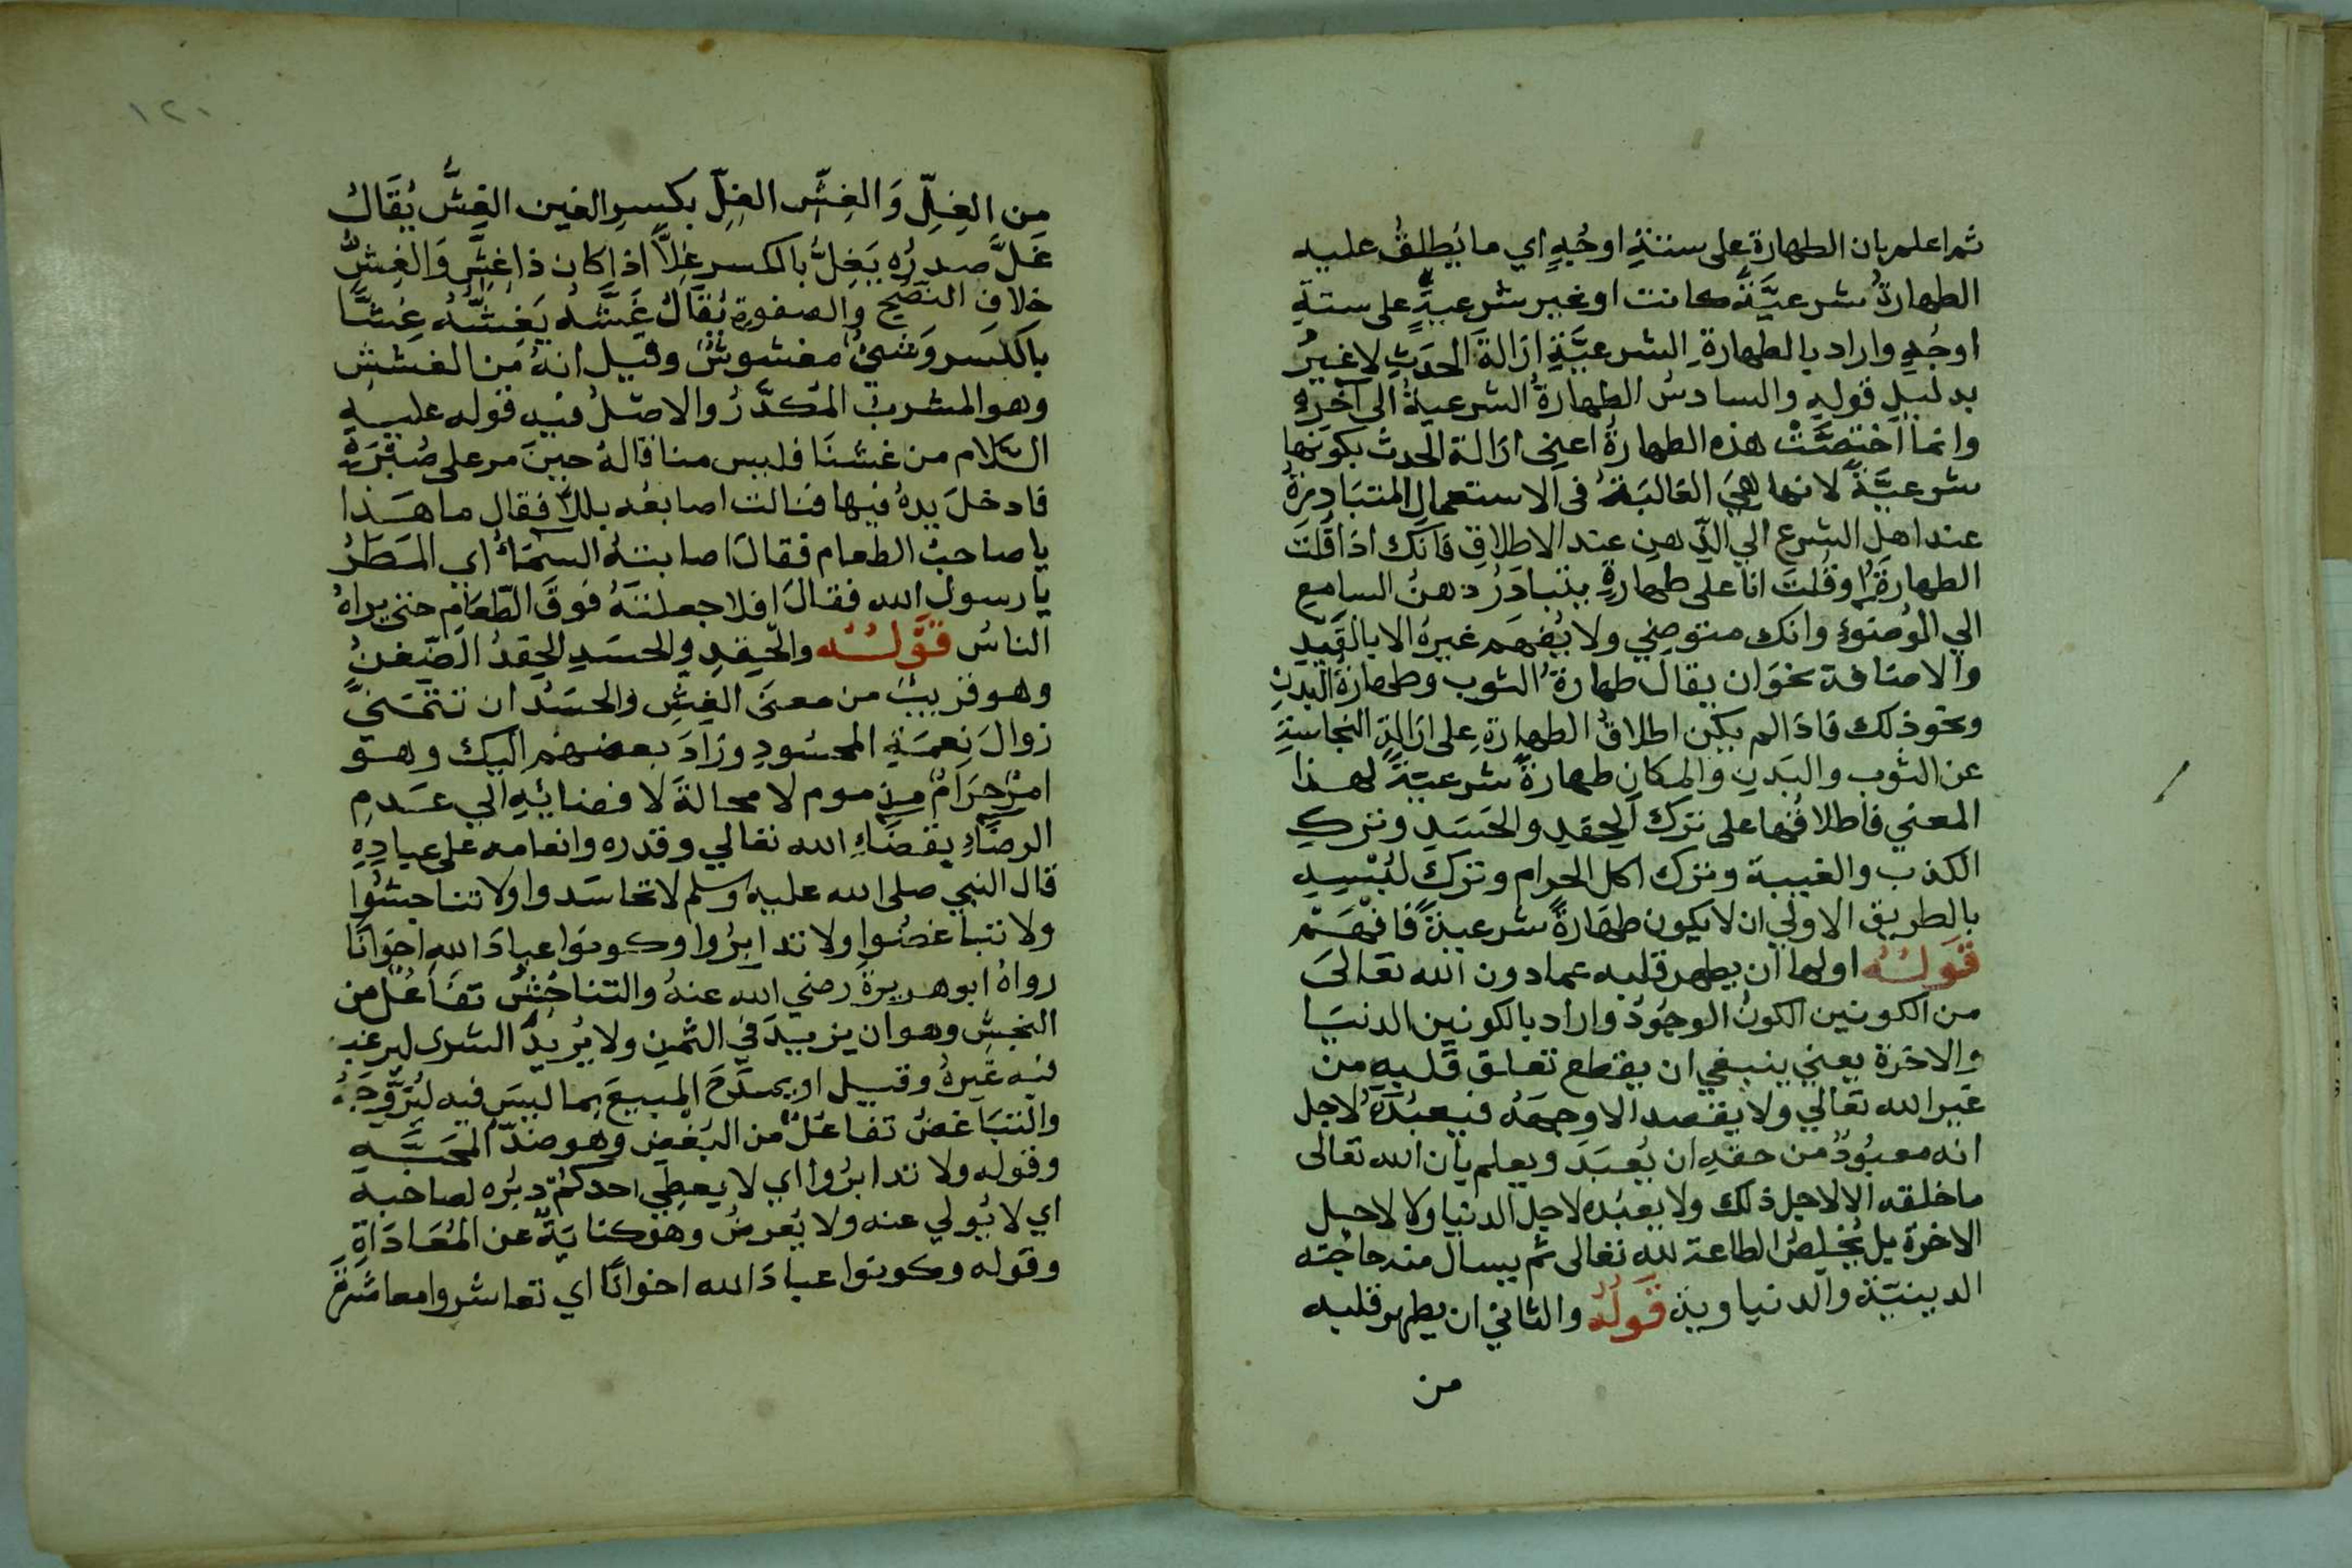 ثم اعلم بان الطهارة على ستة اوجه اي ما يطلق عليه
الطهارة شرعيَّةً كانت او غير شرعية على ستة
اوجه واراد بالطهارة الشرعيَّة ازالة الحدث لا غير
بدليل قوله والسادس الطهارة الشرعية الى آخره
وانما اختصَّت هذه الطهارة اعني ازالة الحدث بكونها
شرعيَّة لانها هي الغالبة في الاستعمال المتبادرة
عند اهل الشرع الي الذهن عند الاطلاق فانك اذا قلت
الطهارة او قلت انا على طهارة يتبادر ذهن السامع
الي الوضوء وانك متوضي ولا يفهم غيره الا بالقيد
والاضافة نحو ان يقال طهارة الثوب وطهارة البدن
ونحو ذلك فاذا لم يكن اطلاق الطهارة على ازالة النجاسة
عن الثوب والبدن والمكان طهارة شرعيّة لهذا
المعني فاطلاقها على ترك الحقد والحسد وترك
الكذب والغيبة وترك اكل الحرام وترك لبسه
بالطريق الاولي ان لا يكون طهارة شرعية فافهم
قوله اولها ان يطهر قلبه عما دون الله تعالى
من الكونين الكون الوجود واراد بالكونين الدنيا
والاخرة يعني ينبغي ان يقطع تعلق قلبه من
غير الله تعالي ولا يقصد الا وجهه فيعبده لاجل
انه معبود من حقه ان يُعبَد ويعلم بان الله تعالى
ما خلقه الا لاجل ذلك ولا يعبده لاجل الدنيا ولا لاجل
الاخرة بل يخلص الطاعة لله تعالى ثم يسال منه حاجته
الدينيّة والدنياوية قوله والثاني ان يطهر قلبه
من
١٢٠
من الغِلّ وَالغِشّ الغِلّ بكسر الغين الغِشّ يُقال
غَلَّ صدرُه يَغِلُّ بالكسر غِلاًّ اذا كان ذا غِشّ وَالغِشُّ
خلاف النصح والصفوة يقال غَشَّهُ يَغِشُّهُ غِشًّا
بالكسر وَشيءٌ مغشوش وقيل انه من الغشش
وهو المشرب المُكدَّر والاصل فيه قوله عليه
السّلام من غشنا فليس منا قاله حين مر على صُبْرَةٍ
فادخل يده فيها فنالت اصابعه بللا فقال ما هذا
يا صاحب الطعام فقال اصابته السماء اي المطر
يا رسول الله فقال افلا جعلته فوق الطعام حتى يراه
الناس قوله والحقد والحسد الحقد الضغن
وهو قريب من معنى الغش والحسد ان تتمنيَّ
زوال نعمة المحسود وزاد بعضهم اليك وهو
امر حرام مذموم لا محالة لافضائه الي عدم
الرضاء بقضاء الله تعالي وقدره وانعامه على عباده
قال النبي صلى الله عليه وسلم لا تحاسدوا ولا تناجشوا
ولا تباغضوا ولا تدابروا وكونوا عباد الله اخوانا
رواه ابو هريرة رضي الله عنه والتناجش تفاعل من
النجش وهو ان يزيد في الثمن ولا يريد الشرى ليرغب
فيه غيره وقيل او يمدح المبيع بما ليس فيه ليُروّجه
والتباغض تفاعل من البغض وهو ضدّ المحبّة
وقوله ولا تدابروا اي لا يعطي احدكم دبره لصاحبه
اي لا يولي عنه ولا يعرض وهو كناية عن المعاداة
وقوله وكونوا عباد الله اخوانا اي تعاشروا معاشرة